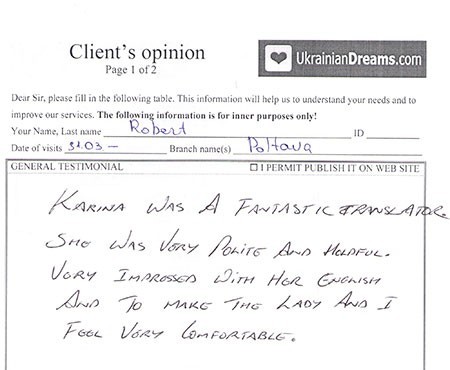 Client's opinion
Page 1 of 2
UkrainianDreams.com
Dear Sir, please fill in the following table. This information will help us to understand your needs and to
improve our services. The following information is for inner purposes only!
Your Name, Last name Robert ID
Date of visits 31.03. — Branch name(s) Poltava
GENERAL TESTIMONIAL ☐ I PERMIT PUBLISH IT ON WEB SITE
KARINA WAS A FANTASTIC TRANSLATOR.
SHE WAS VERY POLITE AND HELPFUL.
VERY IMPRESSED WITH HER ENGLISH
AND TO MAKE THE LADY AND I
FEEL VERY COMFORTABLE.